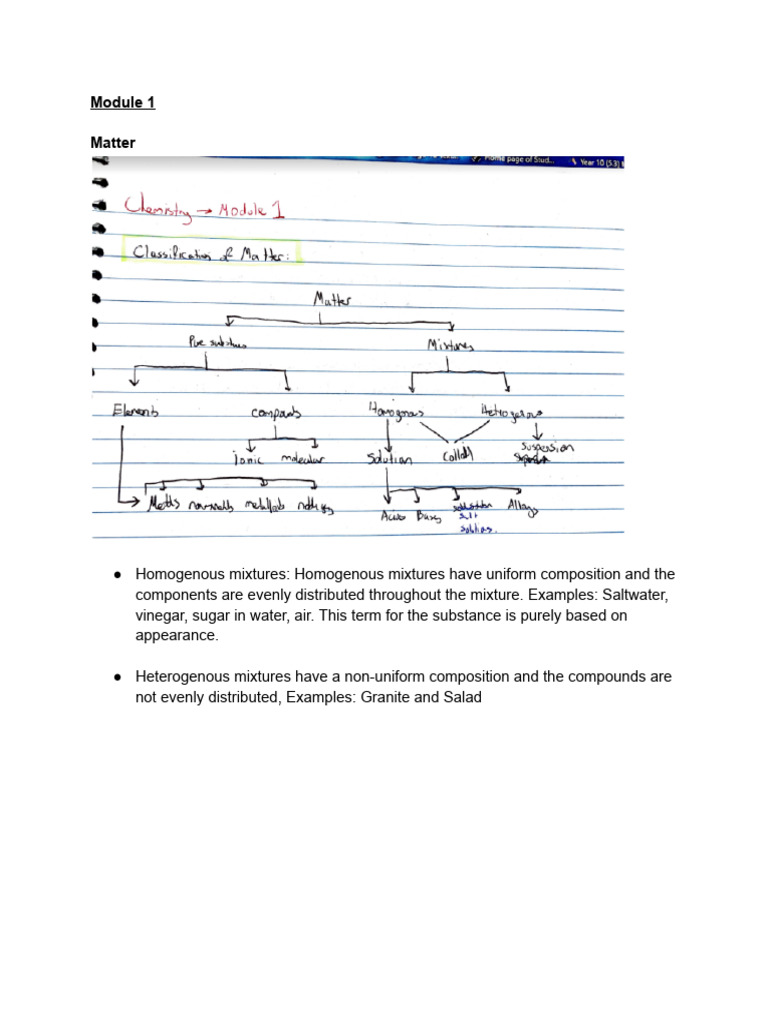 Module 1
Matter
Home page of Stud... Year 10 (5.3)
Chemistry → Module 1
Classification of Matter:
Matter
Pure Mixtures
Elements Homogenous
ionic molecular Solution suspension
Metals Bases Alloys
salt
● Homogenous mixtures: Homogenous mixtures have uniform composition and the
components are evenly distributed throughout the mixture. Examples: Saltwater,
vinegar, sugar in water, air. This term for the substance is purely based on
appearance.
● Heterogenous mixtures have a non-uniform composition and the compounds are
not evenly distributed, Examples: Granite and Salad